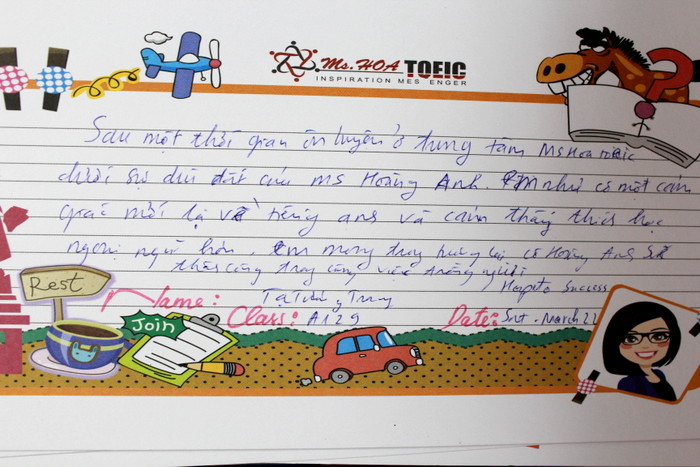 Ms. HOA TOEIC
INSPIRATION MES ENGER
Sau một thời gian ôn luyện ở trung tâm Ms Hoa toeic
dưới sự dìu dắt của ms Hoàng Anh. Em như có một cảm
giác mới lạ về tiếng anh và cảm thấy thích học
ngoại ngữ hơn. Em mong trong tương lai cô Hoàng Anh sẽ
thành công trong công việc trồng người
Hospita Success
Rest
Join
Name:
Class: A129
Date: Sat. March 22